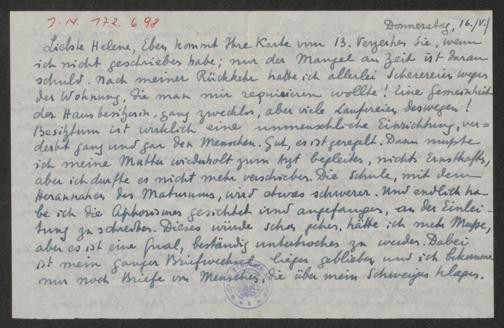 J. N. 172.698
Donnerstag, 16./V./
Liebste Helene, Eben kommt Ihre Karte vom 13. Verzeihen Sie, wenn
ich nicht geschrieben habe; nur der Mangel an Zeit ist daran
schuld. Nach meiner Rückkehr hatte ich allerlei Scherereien wegen
der Wohnung, die man mir requirieren wollte! Eine Gemeinheit
der Hausbesitzerin, ganz zwecklos, aber viele Laufereien deswegen!
Besitztum ist wirklich eine unmenschliche Einrichtung, ver-
dirbt ganz und gar den Menschen. Gut, es ist geregelt. Dann mußte
ich meine Mutter wiederholt zum Arzt begleiten, nichts Ernsthafts,
aber ich durfte es nicht mehr verschieben. Die Schule, mit dem
Herannahen des Maturums, wird etwas schwerer. Und endlich ha-
be ich die Aphorismen gesichtet und angefangen, an der Einlei-
tung zu schreiben. Dieses würde schon gehen, hätte ich mehr Muße,
aber es ist eine Qual, beständig unterbrochen zu werden. Dabei
ist mein ganzer Briefwechsel liegen geblieben und ich bekomme
nur noch Briefe von Menschen, die über mein Schweigen klagen.